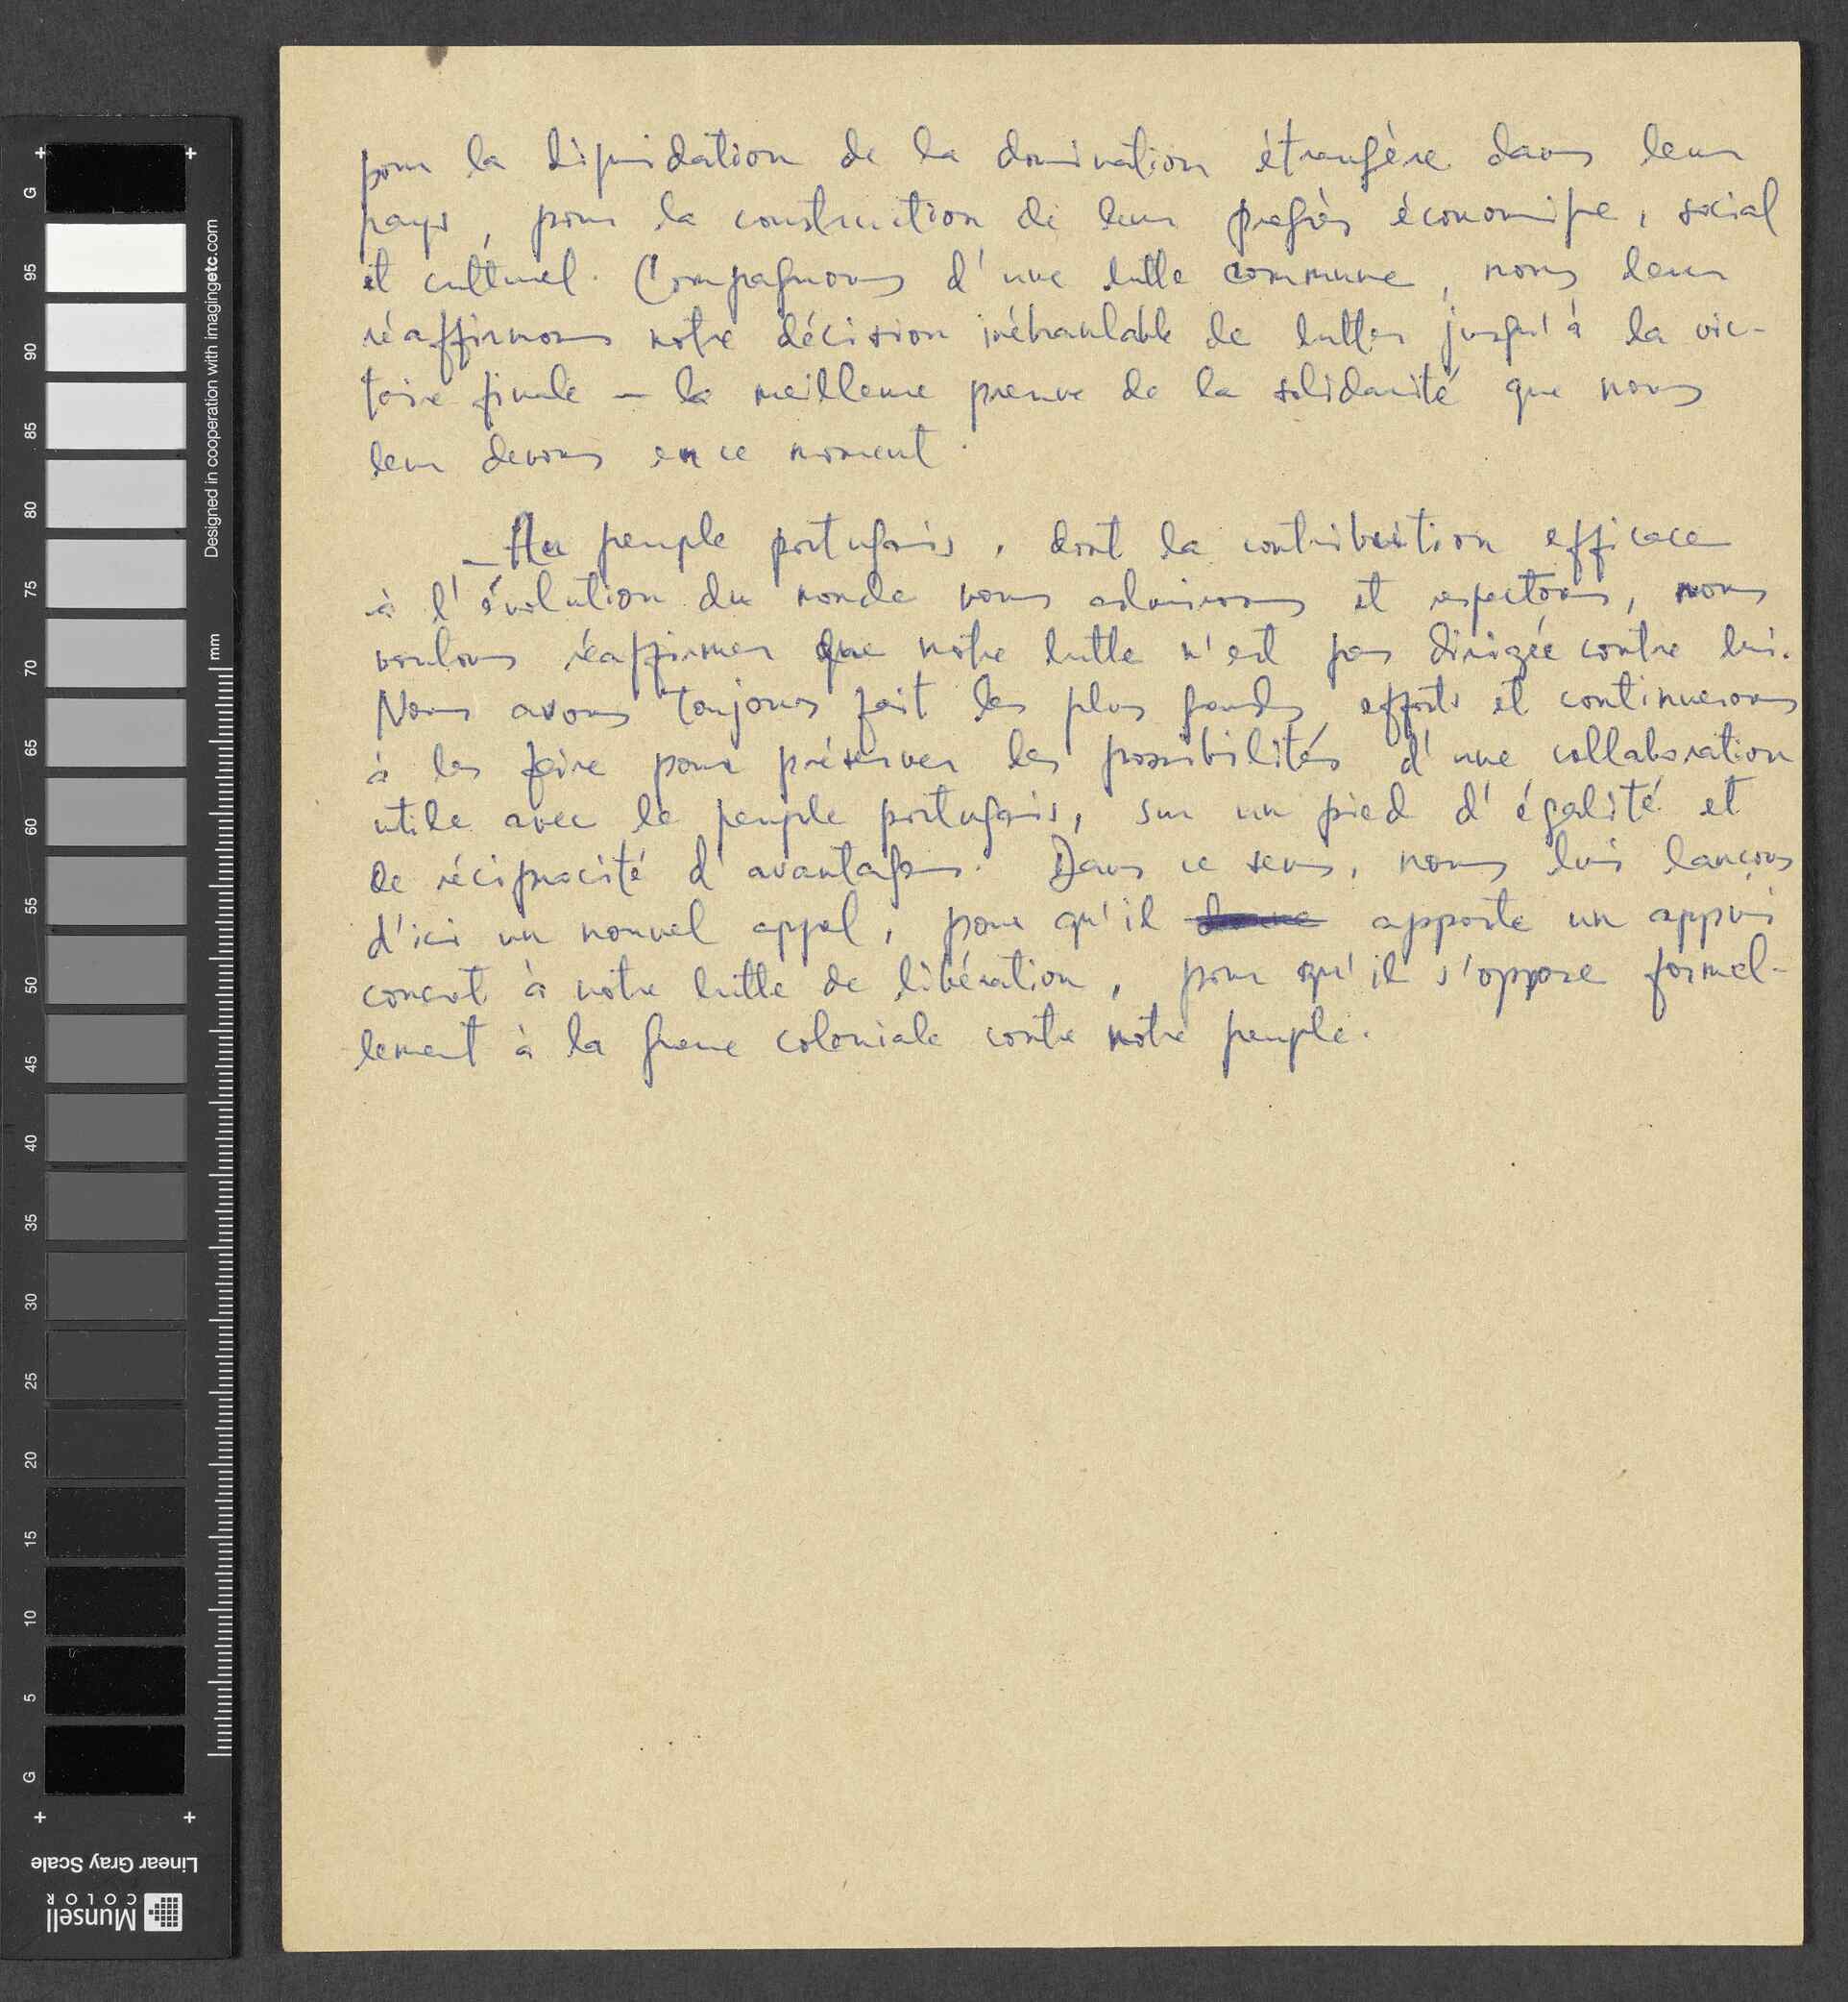 pour la liquidation de la domination étrangère dans leur
pays, pour la construction de leur progrès économique, social
et culturel. Compagnons d'une lutte commune, nous leur
réaffirmons notre décision inébranlable de lutter jusqu'à la vic-
toire finale — la meilleure preuve de la solidarité que nous
leur devons en ce moment.
— Au peuple portugais, dont la contribution efficace
à l'évolution du monde nous admirons et respectons, nous
voulons réaffirmer que notre lutte n'est pas dirigée contre lui.
Nous avons toujours fait les plus grands efforts et continuerons
à les faire pour préserver les possibilités d'une collaboration
utile avec le peuple portugais, sur un pied d'égalité et
de réciprocité d'avantages. Dans ce sens, nous lui lançons
d'ici un nouvel appel, pour qu'il apporte un appui
concret à notre lutte de libération, pour qu'il s'oppose formel-
lement à la guerre coloniale contre notre peuple.
G
95
90
85
80
75
70
65
60
55
50
45
40
35
30
25
20
15
10
5
G
Designed in cooperation with imagingetc.com
mm
Linear Gray Scale
Munsell
COLOR